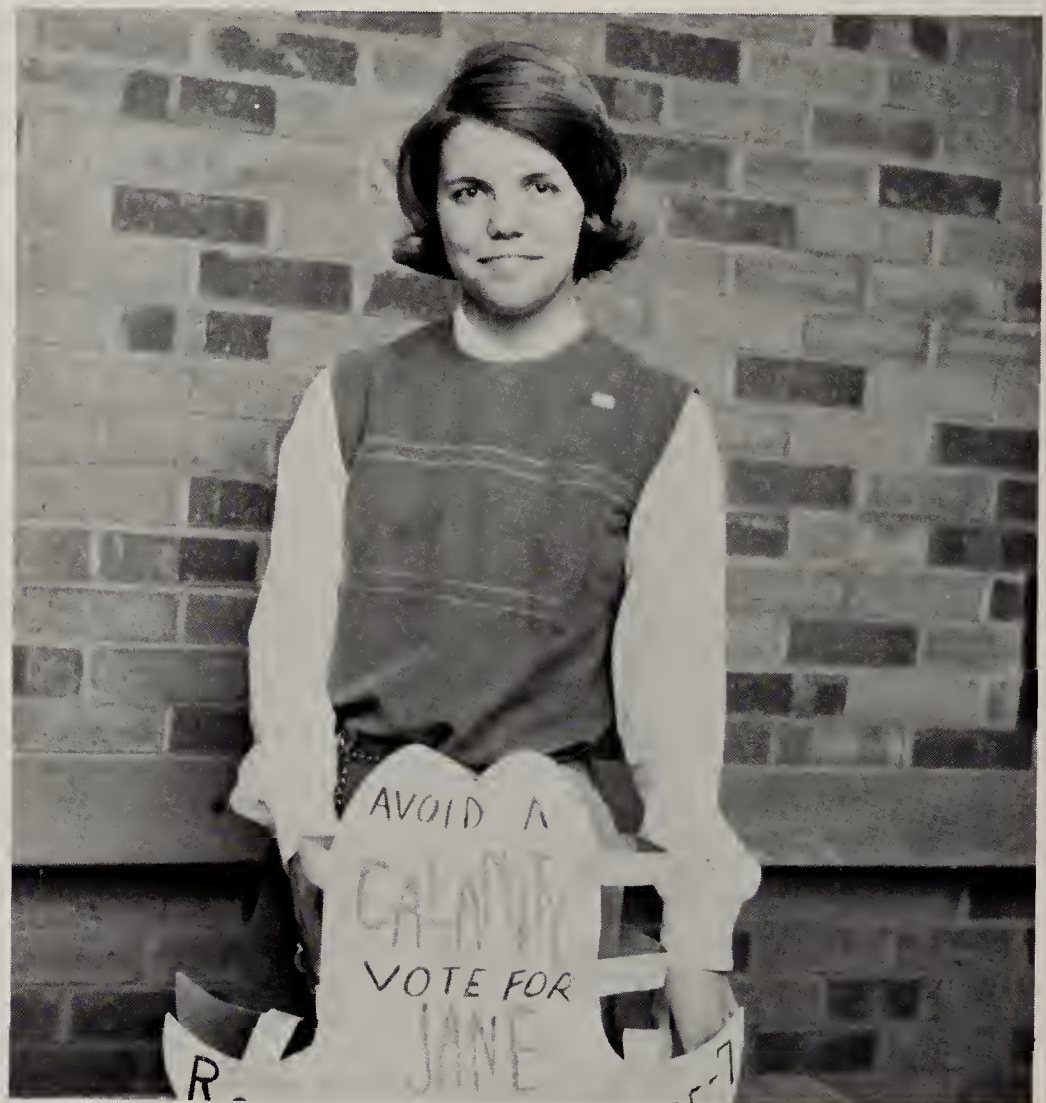 AVOID A
CALAMITY
VOTE FOR
JANE
R.
5-7